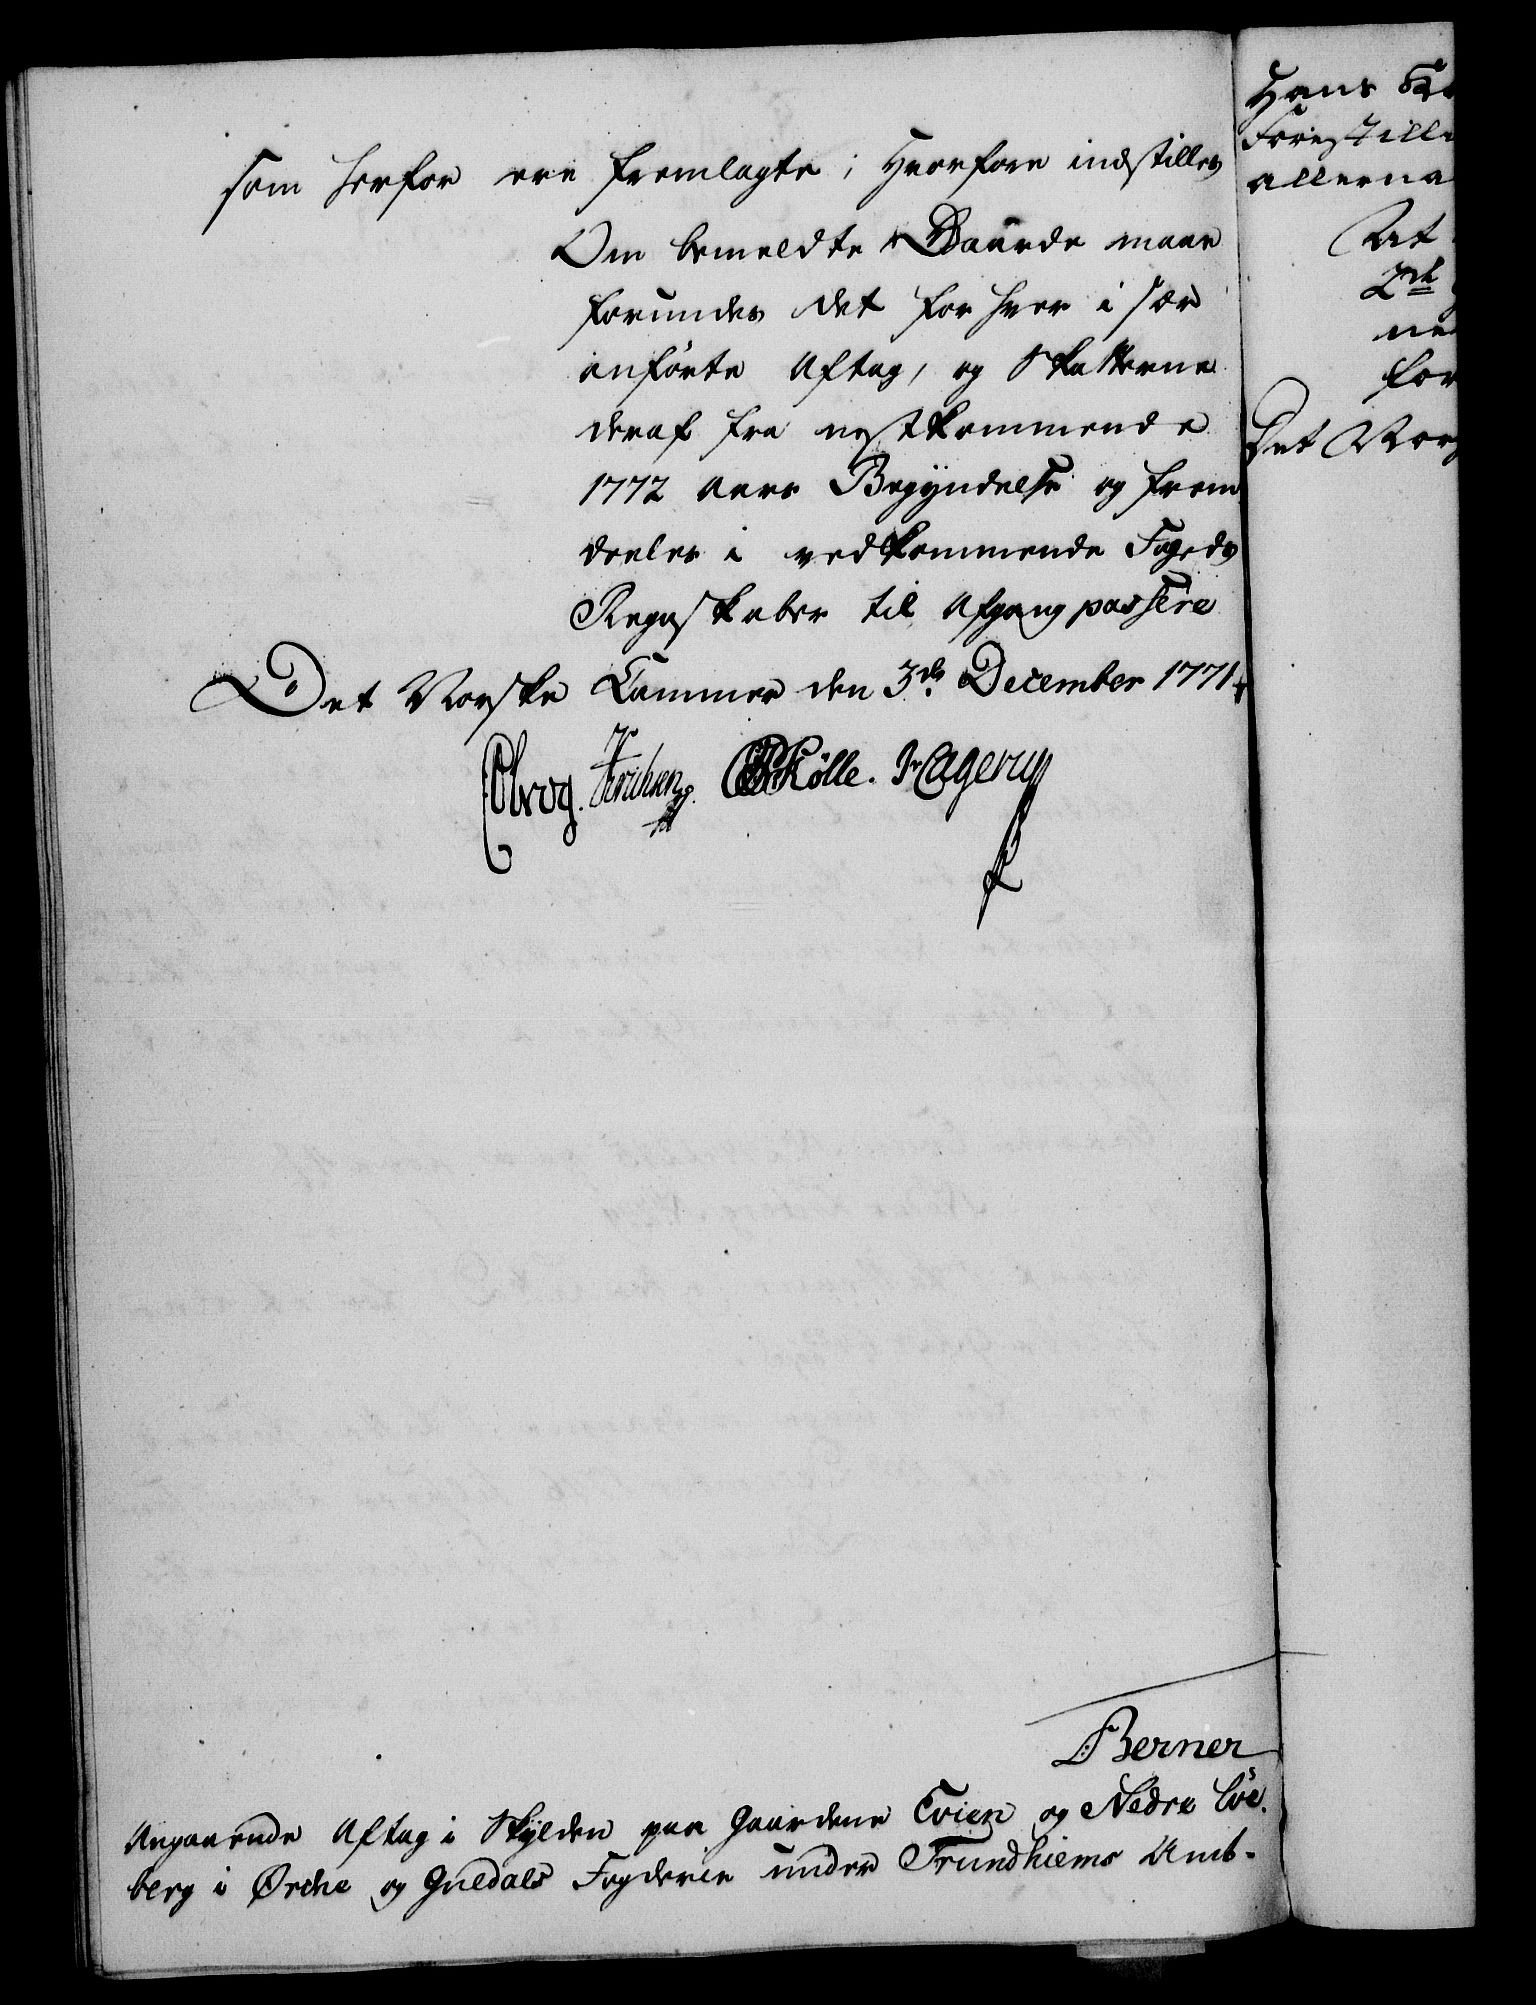 som herfor ere fremlagte; Hvorfore indstilles
Om bemeldte Gaarde maae
forundes det for hver i sær
anförte Aftag, og Skatterne
deraf fra nestkommende
1772 Aars Begyndelse og frem
deeles i vedkommende Fogeds
Regnskaber til Afgang passere
Det Norske Cammer den 3de December 1771.
Obrog. Hinrichsen. Kølle. Hagerup
Berner
Angaaende Aftag i Skylden paa Gaardene Evien og Nedre Löe-
berg i Ørche og Guldals Fogderie under Trundhiems Amt.
Hans
Forestill
allerna
At
2de
ne
for
Det Nors